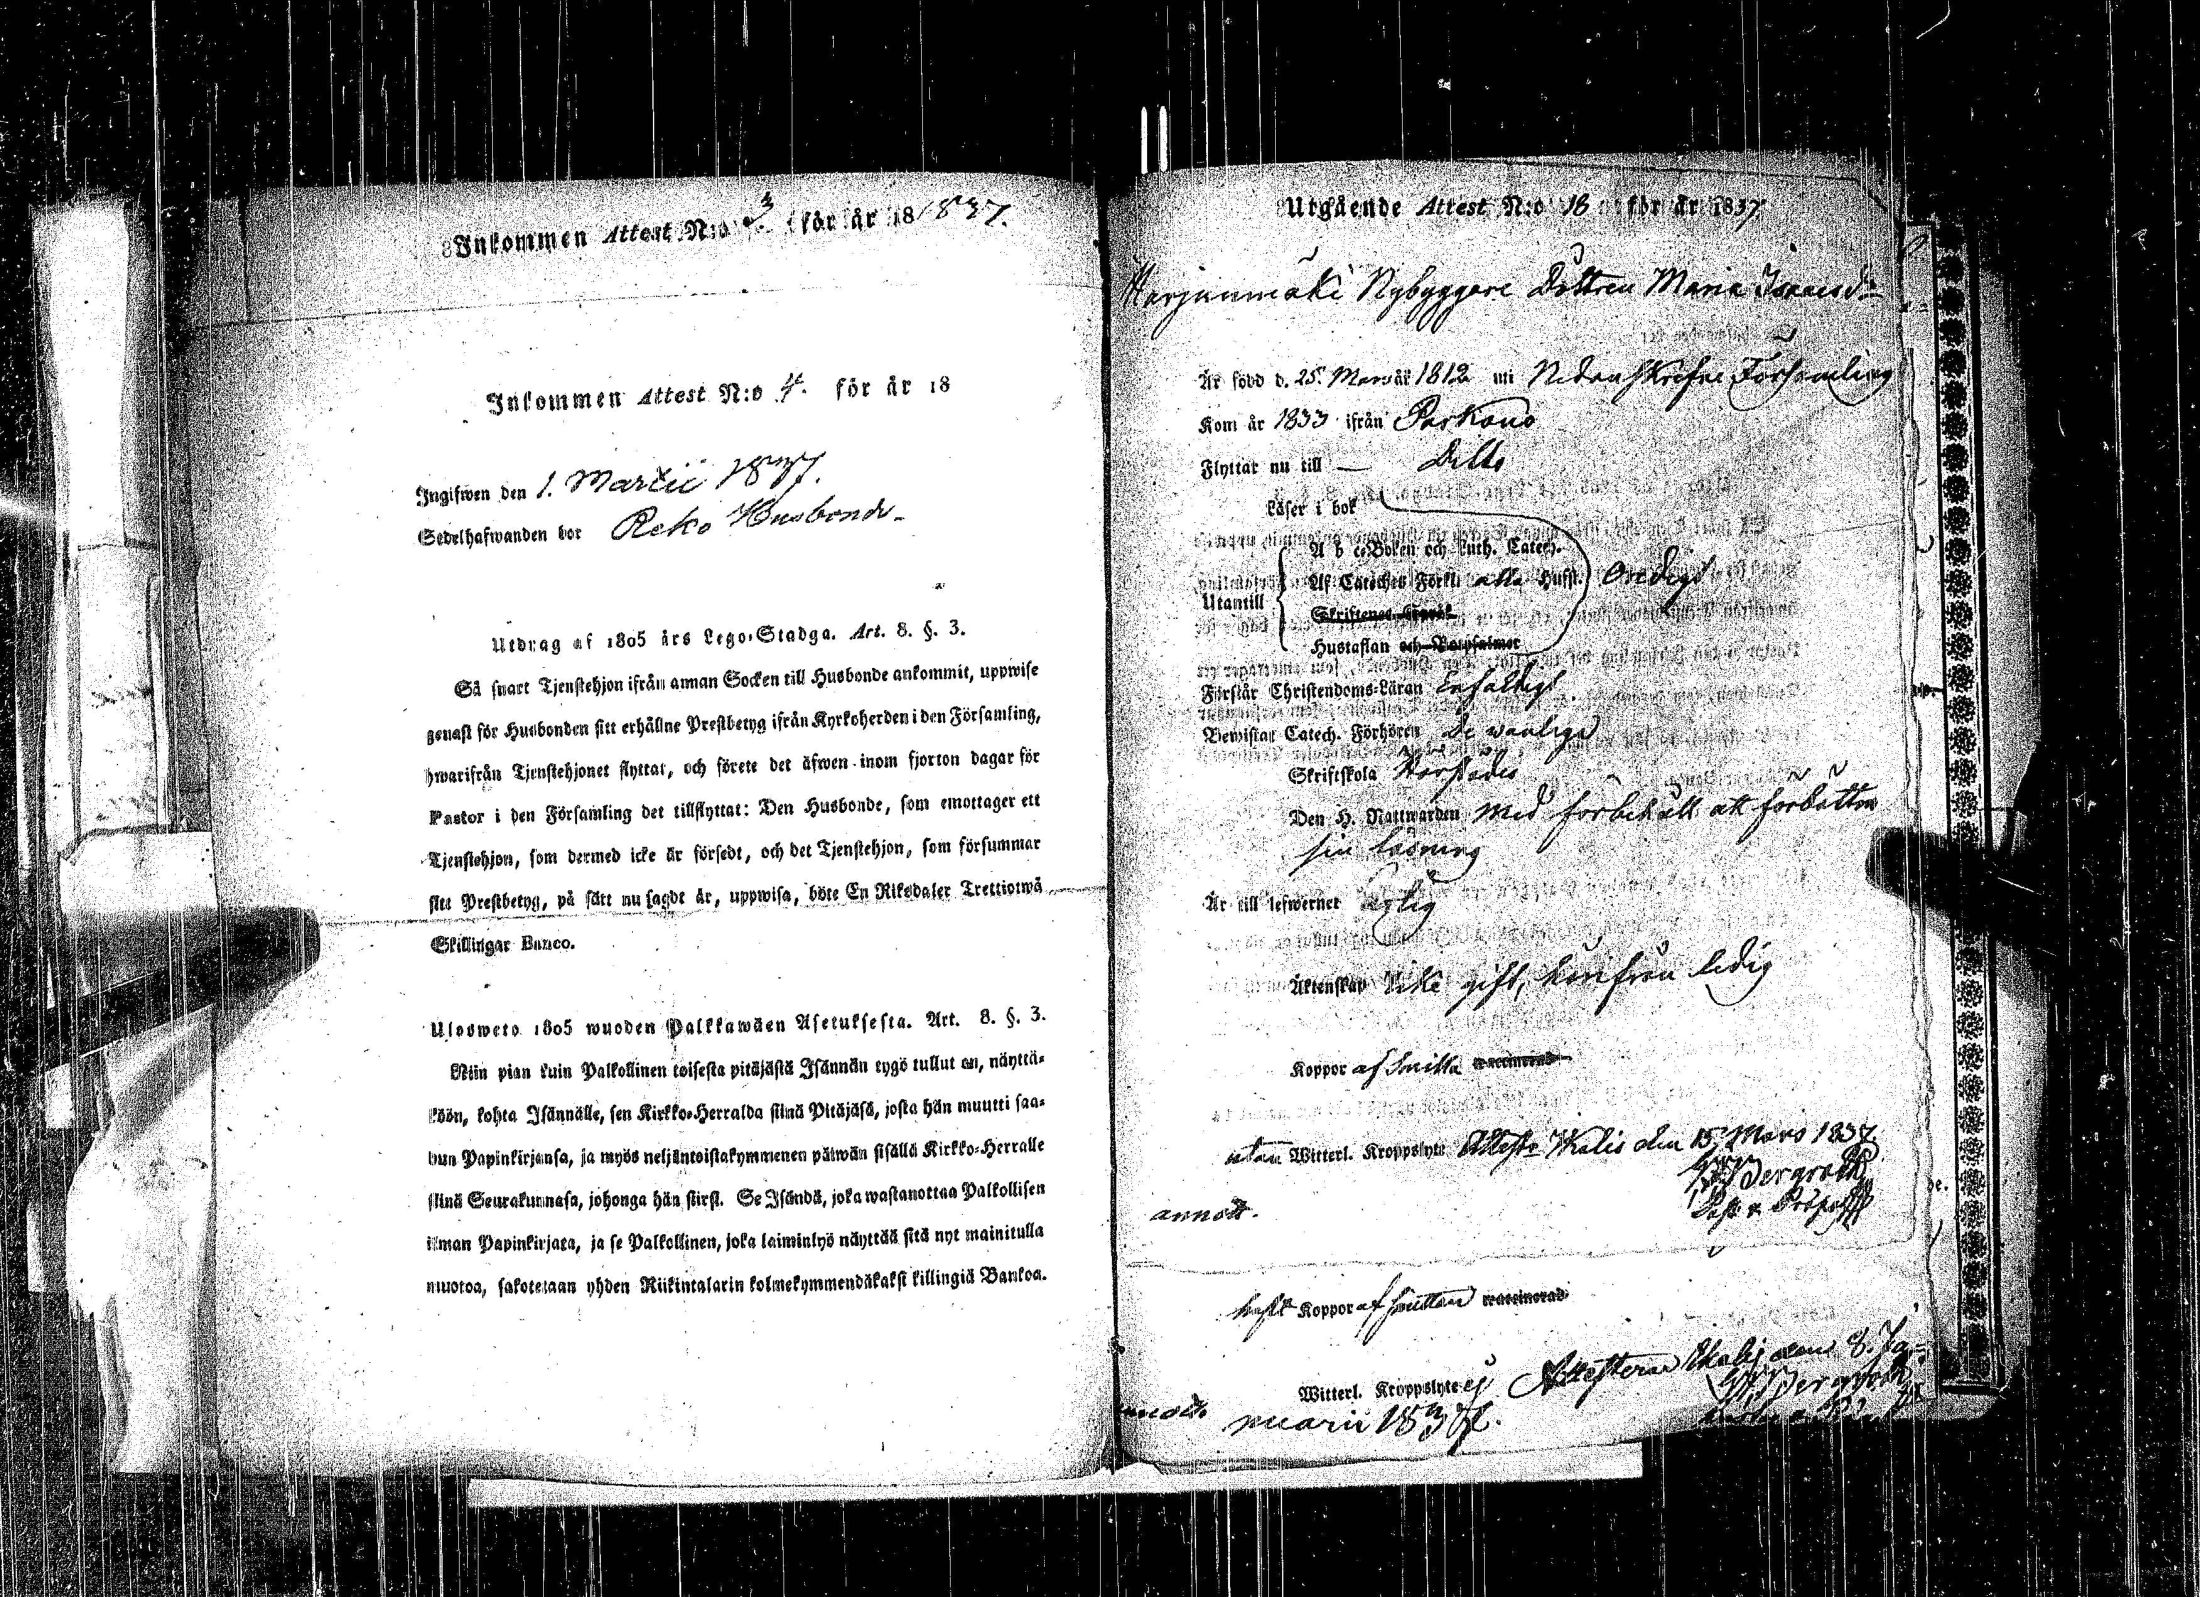 Inkommen Attest N:o 3 för år 18 1837.
Inkommen Attest N:o 4. för år 18
Ingifwen den 1. Martii 1837.
Sedelhafwanden bor Reko Husbonde
Utdrag af 1805 års Lego-Stadga. Art. 8. §. 3.
Så snart Tjenstehjon ifrån annan Socken till Husbonde ankommit, uppwise
genast för Husbonden sitt erhållne Prestbetyg ifrån Kyrkoherden i den Församling,
hwarifrån Tjenstehjonet flyttat, och förete det äfwen inom fjorton dagar för
Pastor i den Församling det tillflyttat: Den Husbonde, som emottager ett
Tjenstehjon, som dermed icke är försedt, och det Tjenstehjon, som försummar
sitt Prestbetyg, på sätt nu sagdt är, uppwisa, böte En Riksdaler Trettiotwå
Skillingar Banco.
Ulosweto 1805 wuoden Palkkawäen Asetuksesta. Art. 8. §. 3.
Niin pian kuin Palkollinen toisesta pitäjästä Isännän tygö tullut on, näyttä-
köön, kohta Isännälle, sen Kirkko-Herralda siinä Pitäjäsä, josta hän muutti saa-
dun Papinkirjansa, ja myös neljäntoistakymmenen päiwän sisällä Kirkko-Herralle
siinä Seurakunnasa, johonga hän siirsi. Se Isändä, joka wastanottaa Palkollisen
ilman Papinkirjata, ja se Palkollinen, joka laiminlyö näyttää sitä nyt mainitulla
muotoa, sakotetaan yhden Riikintalarin kolmekymmendäkaksi killingiä Bankoa.
Utgående Attest N:o 18 för år 1837
Harjunmäki Nybyggare Dottren Maria Isaacsdr
Är född d. 25. Mars år 1812 uti Nedanskrefne Församling
Kom år 1833 ifrån Parkano
Flyttar nu till — Ditto
Läser i bok
A b c-Boken och Luth. Catech.
Utantill Af Cateches Förkl. alla Hufst. Ordigt
Skriftenes Språk
Hustaflan och Botpsalmer
Förstår Christendoms-Läran Enfaldigt.
Bewistar Catech. Förhören de wanliga
Skriftskola
Den H. Nattwarden med förbehåll att förbättra
sin läsning
Är till lefwernet ärlig
Äktenskap icke gift, hvarifrån ledig
Koppor af Smitta vaccinerad
utan Witterl. Kroppslyte Attest. Ikalis den 15 Mars 1837
Bergroth
annot.
haft Koppor af smittan vaccinerad
Witterl. Kroppslyte ej Attesterar Ikalis den 8. Ja-
nuarii 183
Bergroth